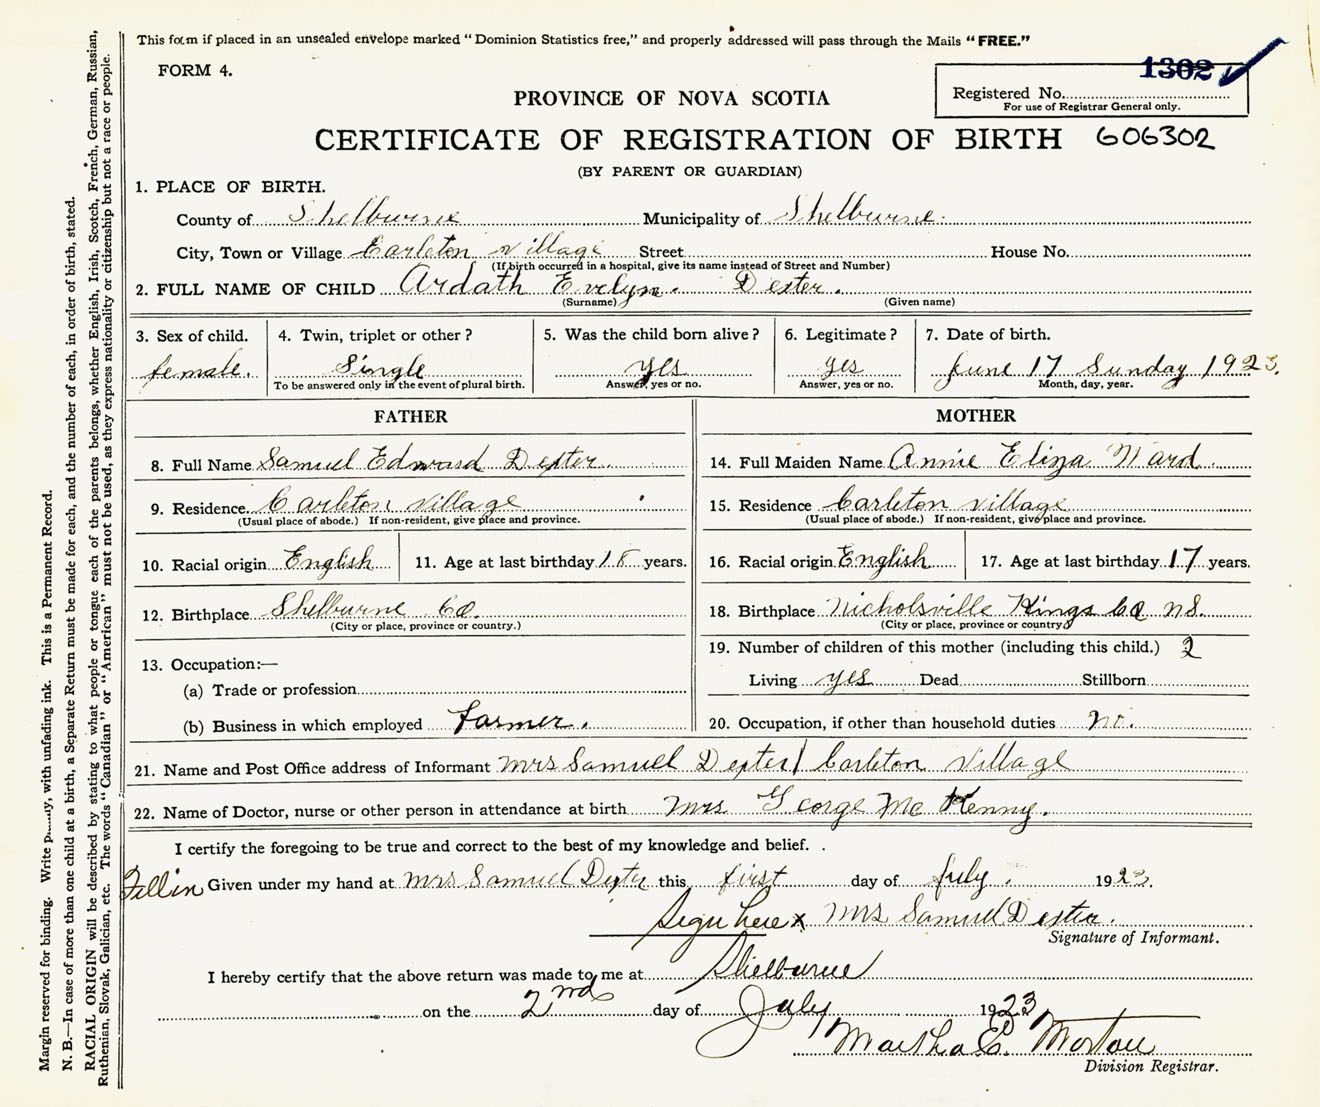 This form if placed in an unsealed envelope marked "Dominion Statistics free," and properly addressed will pass through the Mails "FREE."
FORM 4.
1302
Registered No.
For use of Registrar General only.
PROVINCE OF NOVA SCOTIA
CERTIFICATE OF REGISTRATION OF BIRTH 606302
(BY PARENT OR GUARDIAN)
1. PLACE OF BIRTH.
County of Shelburne Municipality of Shelburne.
City, Town or Village Carleton village Street House No.
(If birth occurred in a hospital, give its name instead of Street and Number)
2. FULL NAME OF CHILD Ardath Evelyn. Dexter.
(Surname) (Given name)
3. Sex of child. 4. Twin, triplet or other? 5. Was the child born alive? 6. Legitimate? 7. Date of birth.
female. Single yes yes June 17 Sunday 1923.
To be answered only in the event of plural birth. Answer, yes or no. Answer, yes or no. Month, day, year.
FATHER MOTHER
8. Full Name Samuel Edward Dexter. 14. Full Maiden Name Annie Eliza Ward.
9. Residence. Carleton village 15. Residence Carleton village
(Usual place of abode.) If non-resident, give place and province. (Usual place of abode.) If non-resident, give place and province.
10. Racial origin English 11. Age at last birthday 18 years. 16. Racial origin English 17. Age at last birthday 17 years.
12. Birthplace Shelburne Co. 18. Birthplace Nicholsville Kings Co N.S.
(City or place, province or country.) (City or place, province or country)
13. Occupation:— 19. Number of children of this mother (including this child.) 2
(a) Trade or profession Living yes Dead Stillborn
(b) Business in which employed Farmer. 20. Occupation, if other than household duties no.
21. Name and Post Office address of Informant Mrs Samuel Dexter Carleton Village
22. Name of Doctor, nurse or other person in attendance at birth Mrs George Mc Kenny.
I certify the foregoing to be true and correct to the best of my knowledge and belief.
Fill in Given under my hand at Mrs Samuel Dexter this first day of July. 1923.
Sign here x Mrs Samuel Dexter.
Signature of Informant.
I hereby certify that the above return was made to me at Shelburne
on the 2nd day of July 1923
Martha E. Morton
Division Registrar.
Margin reserved for binding. Write with unfading ink. This is a Permanent Record.
N. B.—In case of more than one child at a birth, a Separate Return must be made for each, and the number of each, in order of birth, stated.
RACIAL ORIGIN will be described by stating to what people or tongue each of the parents belongs, whether English, Irish, Scotch, French, German, Russian,
Ruthenian, Slovak, Galician, etc. The words "Canadian" or "American" must not be used, as they express nationality or citizenship but not a race or people.